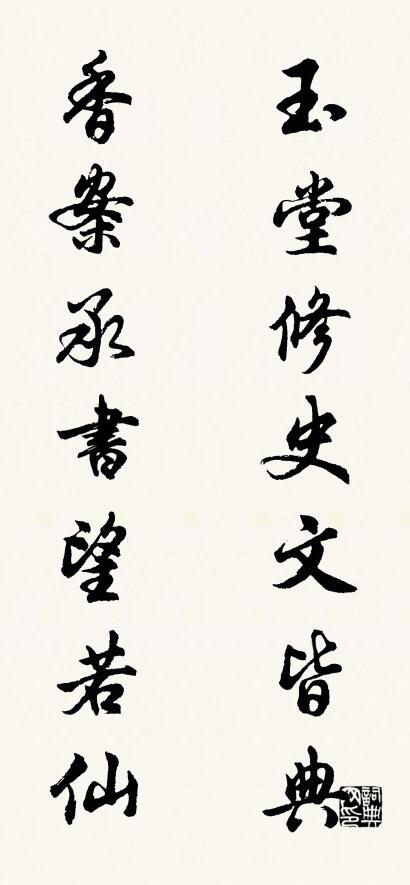 玉堂修史文皆典
香案承書望若仙